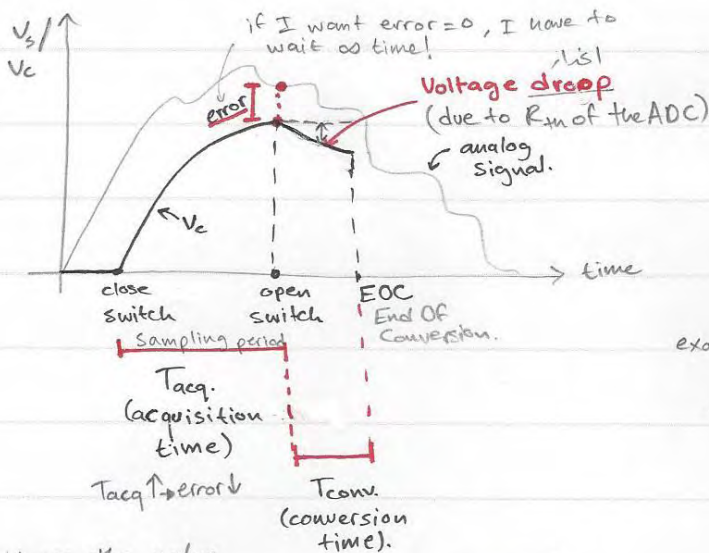 if I want error=0, I have to
wait ∞ time!
Vs/
Vc
error
Voltage droop
(due to Rth of the ADC)
analog
signal.
Vc
time
close
switch
open
switch
EOC
End Of
Conversion.
Sampling period
Tacq.
(acquisition
time)
Tacq↑→error↓
Tconv.
(conversion
time).